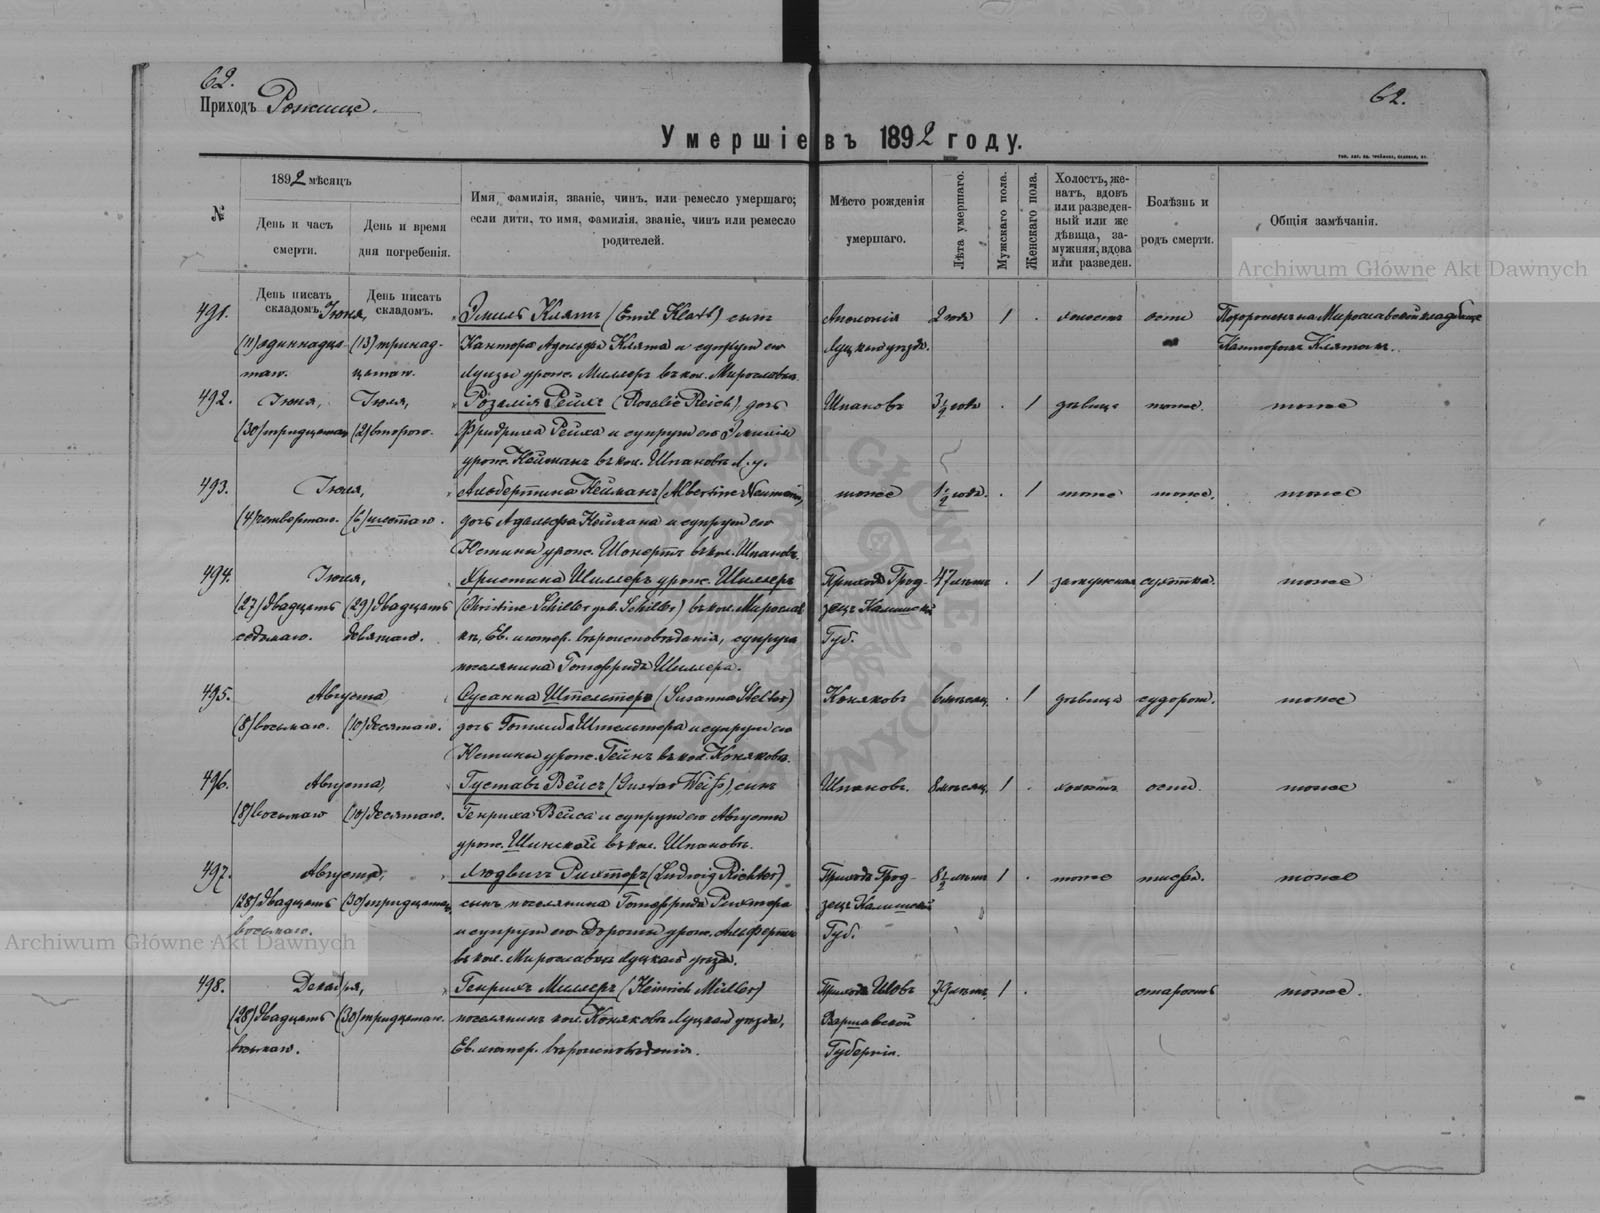 62.
62.
Приходъ Рожище.
Умершіе въ 1892 году.
№
1892 мѣсяцъ
День и часъ смерти.
День и время дня погребенія.
Имя, фамилія, званіе, чинъ, или ремесло умершаго;
если дитя, то имя, фамилія, званіе, чинъ или ремесло
родителей.
Мѣсто рожденія
умершаго.
Лѣта умершаго.
Мужскаго пола.
Женскаго пола.
Холостъ, же-
натъ, вдовъ
или разведен-
ный или же
дѣвица, за-
мужняя, вдова
или разведен.
Болѣзнь и
родъ смерти.
Общія замѣчанія.
День писать складомъ.
День писать складомъ.
491. Іюня, Эмиль Клятъ (Emil Klatt) сынъ Аполонія 2 года 1 . холостъ оспа Похороненъ на Мирославской кладбище
(11) одиннадца- (13) тринад- Кантора Адольфа Клята и супруги его Луцкаго уѣзда. Канторомъ Клятомъ.
таго. цатаго. Луизы урож. Миллеръ въ кол. Мирославка.
492. Іюня, Іюля, Розалія Рейхъ (Rosalie Reich), дочь Шпаковъ 3½ года . 1 дѣвица тоже. тоже
(30) тридцатаго (2) втораго. Фридриха Рейха и супруги его Эмиліи
урож. Нейманъ въ кол. Шпаковъ Л. у.
493. Іюля, Альбертина Нейманъ (Albertine Neumann), тоже 1½ года. . 1 тоже тоже. тоже
(4) четвертаго. (6) шестаго. дочь Адольфа Неймана и супруги его
Юстины урож. Шонертъ въ кол. Шпаковъ.
494. Іюля, Христина Шиллеръ урож. Шиллеръ Прихода Грод- 47 лѣтъ . 1 замужняя сухотка. тоже
(27) двадцать (29) двадцать (Christine Schiller geb. Schiller) въ кол. Мирослав- зецъ Калишской
седьмаго. девятаго. къ, Ев. лютер. вѣроисповѣданія, супруга Губ.
поселянина Готфрида Шиллера.
495. Августа Сусанна Штельтеръ (Susanna Stelter) Коняковъ 6 мѣсяц. . 1 дѣвица судорог. тоже
(8) восьмаго. (10) десятаго. дочь Готлиба Штельтера и супруги его
Юстины урож. Гейнъ въ кол. Коняковъ.
496. Августа, Густавъ Вейсъ (Gustav Weiß), сынъ Шпаковъ. 8 мѣсяц. 1 . холостъ оспа. тоже
(8) восьмаго (10) десятаго. Генриха Вейса и супруги его Августы
урож. Шинской въ кол. Шпаковъ.
497. Августа, Людвигъ Рихтеръ (Ludwig Richter) Прихода Грод- 8½ лѣтъ 1 . тоже тифа. тоже
(28) двадцать (30) тридцатаго. сынъ поселянина Готфрида Рихтера зецъ Калишской
восьмаго. и супруги его Доротеи урож. Губ.
въ кол. Мирославка Луцкаго уѣзда.
498. Декабря, Генрихъ Миллеръ (Heinrich Müller) Прихода Иловъ 79 лѣтъ. 1 . старость тоже.
(28) двадцать (30) тридцатаго. поселянинъ кол. Коняковъ Луцкаго уѣзда, Варшавской
восьмаго. Ев. лютер. вѣроисповѣданія. Губерніи.
Archiwum Główne Akt Dawnych
Archiwum Główne Akt Dawnych